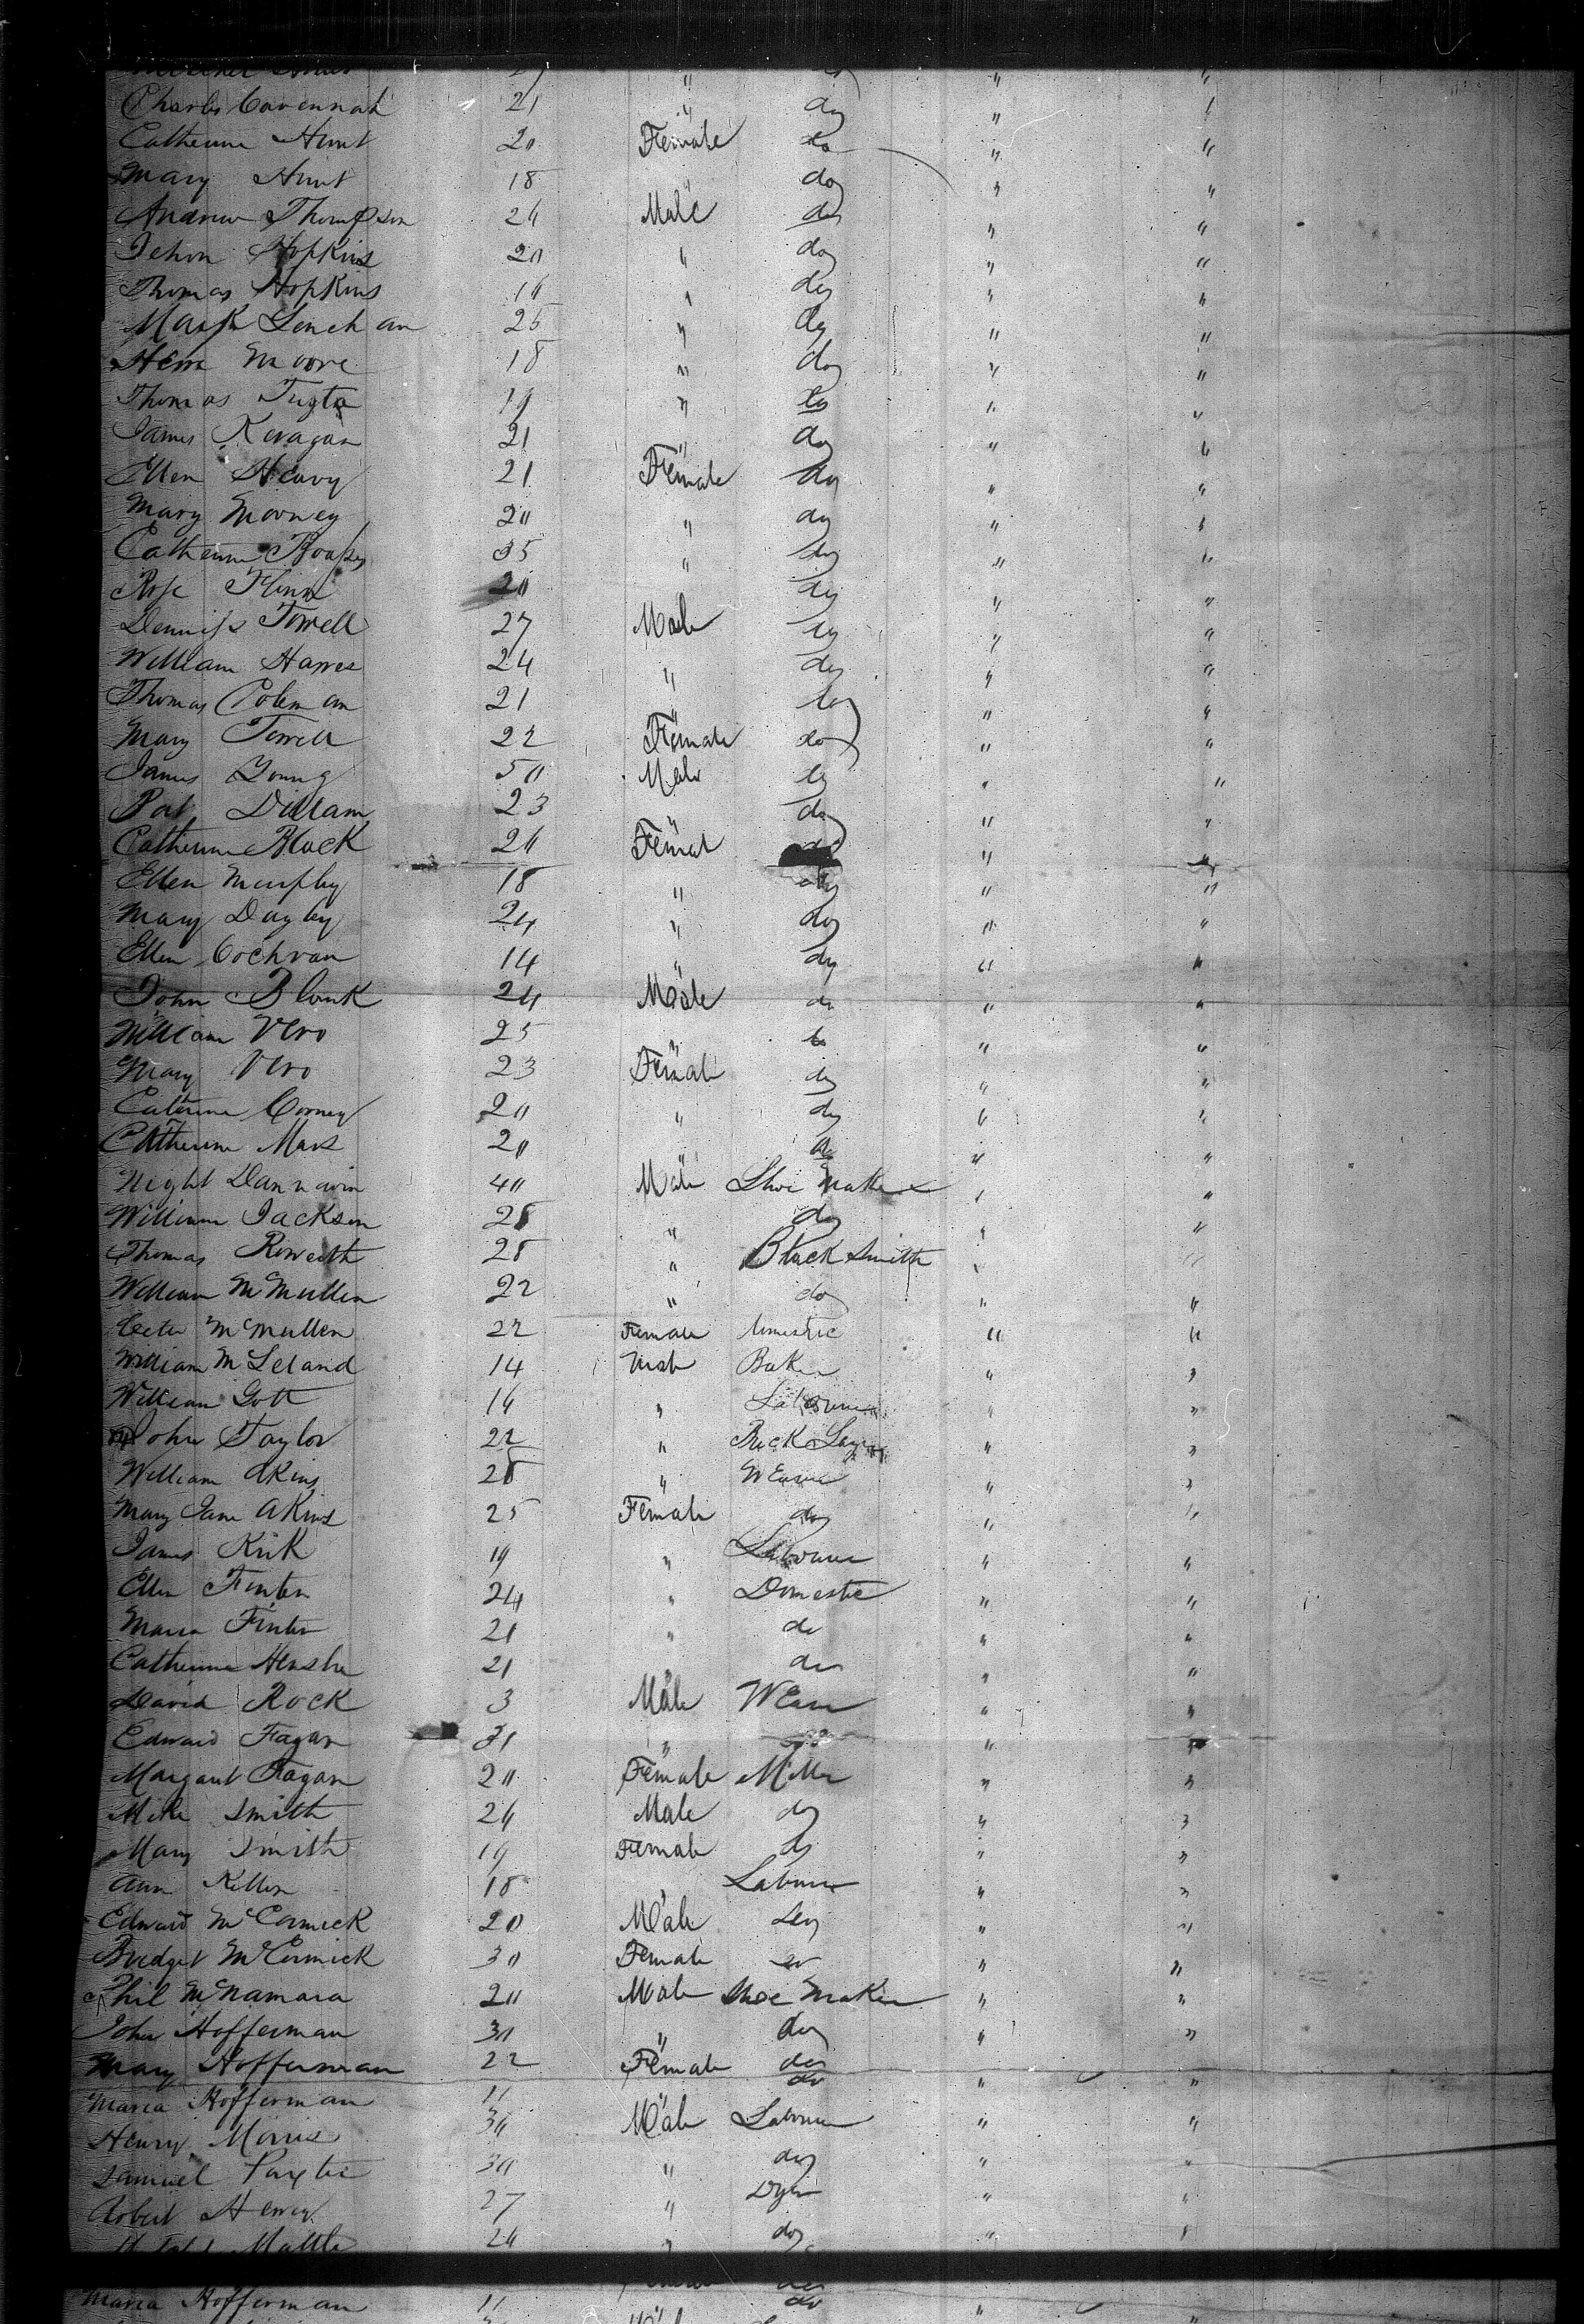 Charles Cavennah 21 " do " "
Catherine Hunt 20 Female do " "
Mary Hunt 18 " do " "
Andrew Thompson 24 Male do " "
Jehon Hopkins 20 " do " "
Thomas Hopkins " do " "
Mark Lenehan 25 " do " "
Moore 18 " do " "
Thomas 19 " do " "
James Keragan 21 " do " "
Ellen Heavy 21 Female do " "
Mary Mooney 20 " do " "
Catherine 35 " do " "
Rose Flinn 20 " do " "
Denniss Torrell 27 Male do " "
William Hawes 24 " do " "
Thomas Coleman 21 " do " "
Mary Torrell 22 Female do " "
James Young 50 Male do " "
Pat Dillam 23 " do " "
Catherine Black 20 Female do " "
Ellen Murphy 18 " do " "
Mary Dayby 24 " do " "
Ellen Cochran 14 " do " "
John Blank 24 Male do " "
William Vero 25 " do " "
Mary Vero 23 Female do " "
Catherine Corney 20 " do " "
Catherine Mars 20 " do " "
Night Dannavin 40 Male Shoe Maker " "
William Jackson 28 " do " "
Thomas 28 " Black Smith " "
William McMullen 22 " do " "
McMullen 22 Female domestic " "
William McLeland 14 Male Baker " "
William Gott 16 " Labourer " "
John Taylor 22 " Brick Layer " "
William Akins 28 " Weaver " "
Mary Jane Akins 25 Female do " "
James Kirk 19 " Labourer " "
Ellen Finten 24 " Domestic " "
Maria Finten 21 " do " "
Catherine 21 " do " "
David Rock 3 Male Weaver " "
Edward Fagan 31 " do " "
Margaret Fagan 20 Female Miller " "
Mike Smith 24 Male do " "
Mary Smith 19 Female do " "
Ann Kellen 18 " Labourer " "
Edward McCormick 20 Male do " "
Bridget McCormick 30 Female do " "
Phil McNamara 20 Male Shoe Maker " "
John Hofferman 30 " do " "
Mary Hofferman 22 Female do " "
Maria Hofferman 11 do " "
Henry Morris 30 Male Labourer " "
Samuel 30 " do " "
Robert Henry 27 " Dyer " "
24 " do " "
Maria Hofferman 11 do "